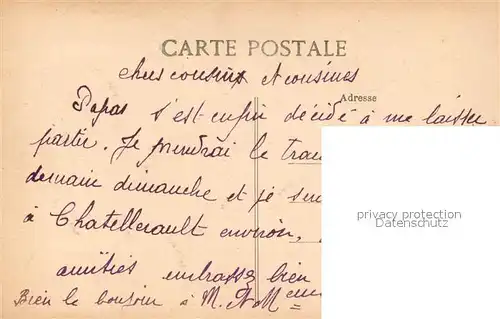 CARTE POSTALE
chers cousins et cousines
Adresse
Papas s'est enfin décidé à me laisser
partir. Je prendrai le
demain dimanche et je
à Chatellerault environ,
privacy protection
Datenschutz
amitiés embrassez bien
Bien le bonjour à M. et Mme